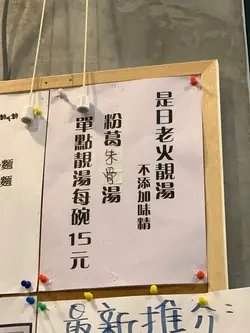 是日老火靚湯
不添加味精
粉葛朱骨湯
單點靚湯每碗15元
麵
麵
最新推介: